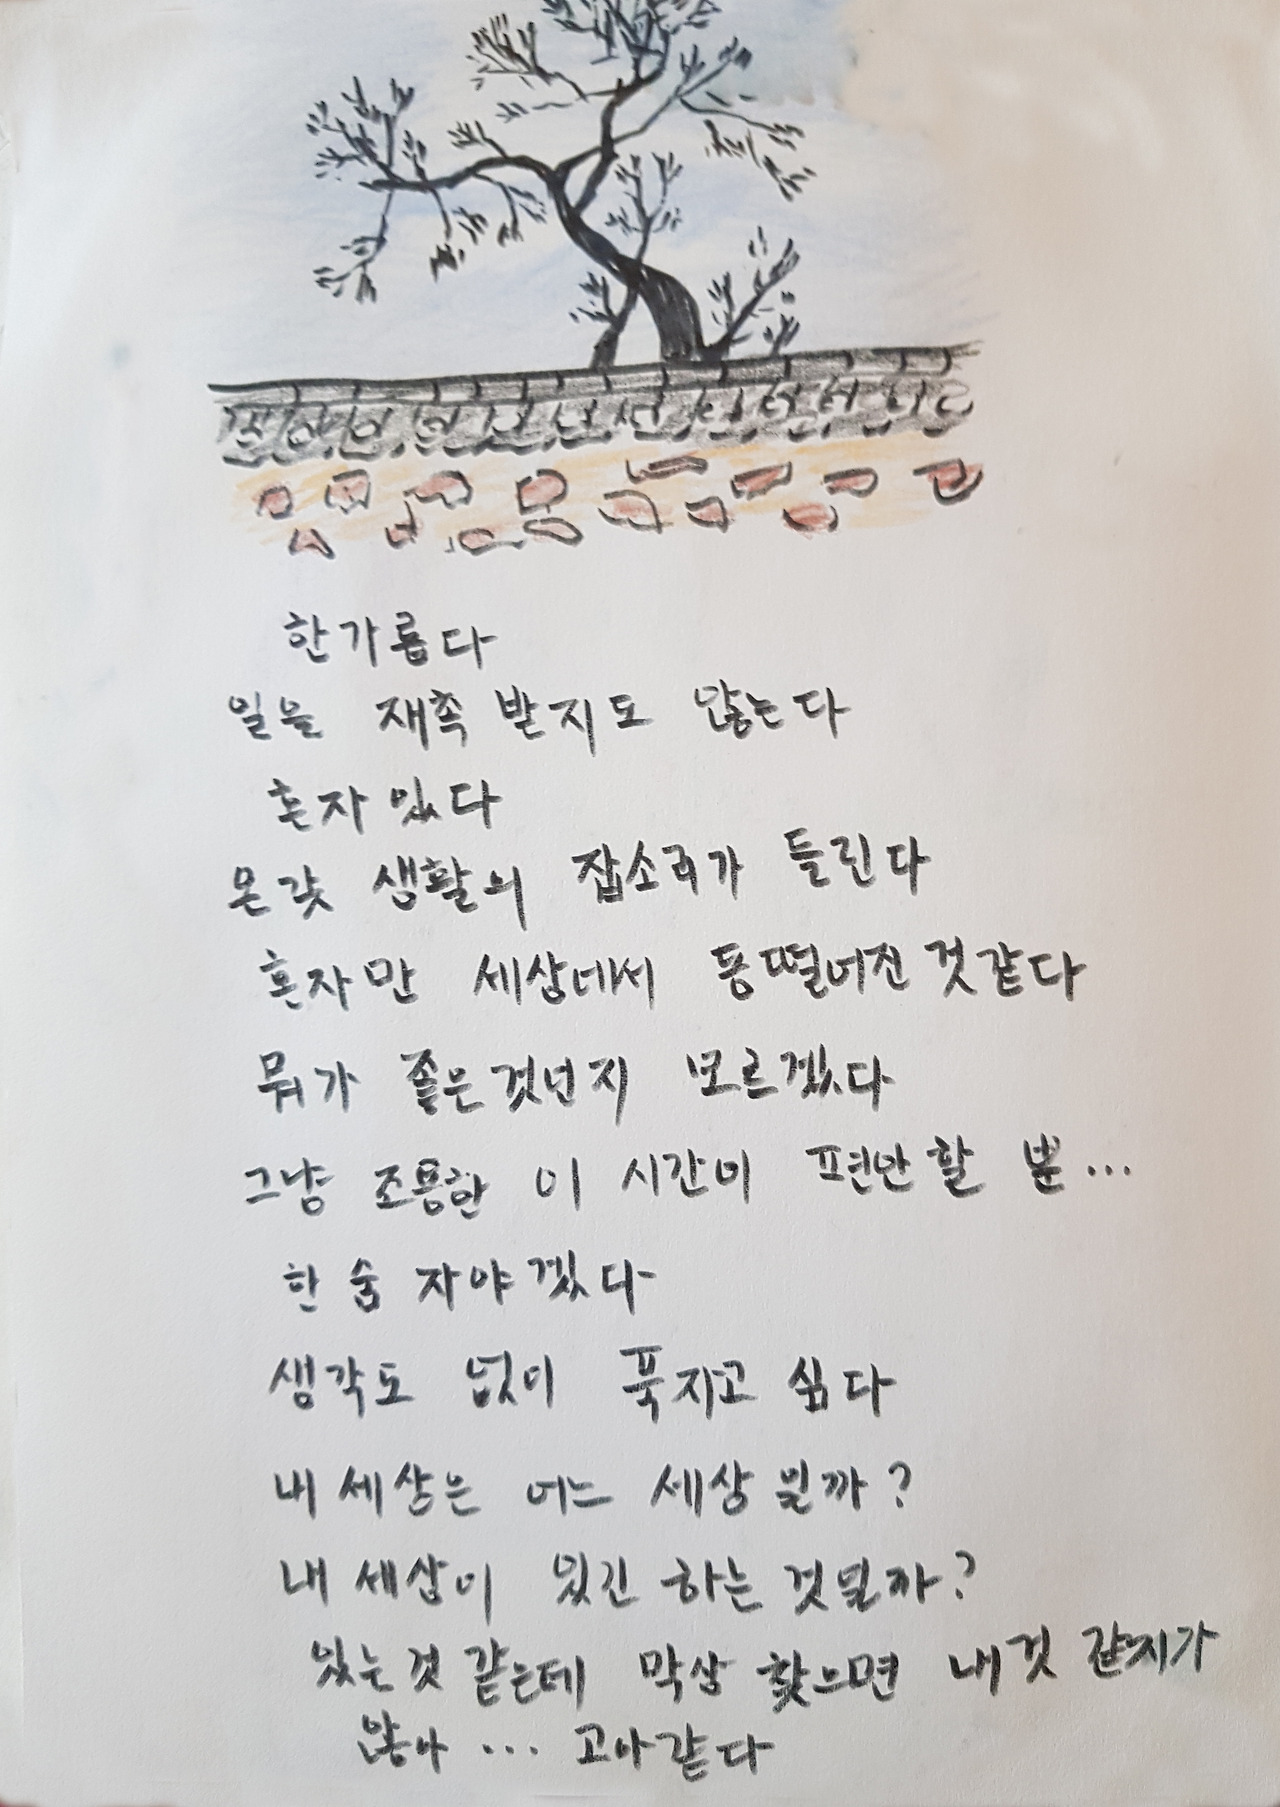 한가롭다
일을 재촉 받지도 않는다
혼자 있다
온갖 생활의 잡소리가 들린다
혼자만 세상에서 동떨어진 것같다
뭐가 좋은것인지 모르겠다
그냥 조용한 이 시간이 편안할 뿐...
한 숨 자야겠다
생각도 없이 푹자고 싶다
내 세상은 어느 세상 일까?
내 세상이 있긴 하는 것일까?
있는것 같은데 막상 찾으면 내것 같지가
않아 ... 고아같다